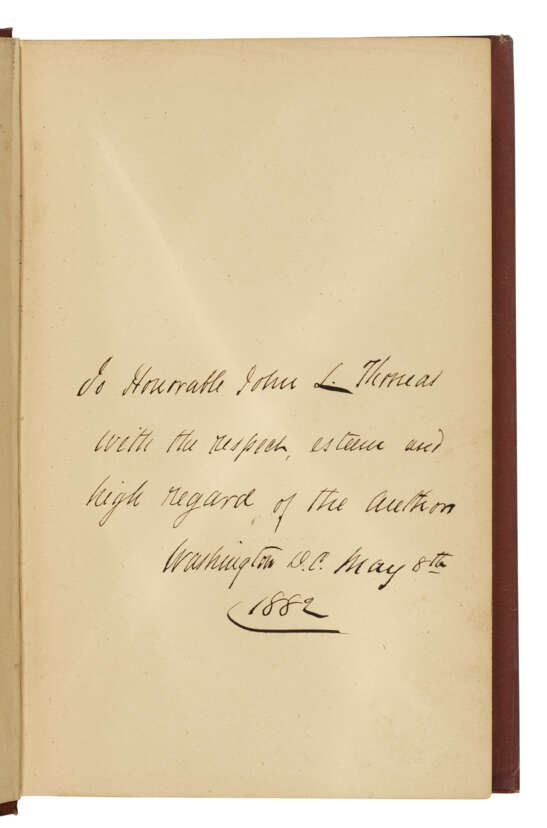 To Honorable John L. Thomas
with the respect, esteem and
high regard, of the author
Washington D.C. May 8th
1882